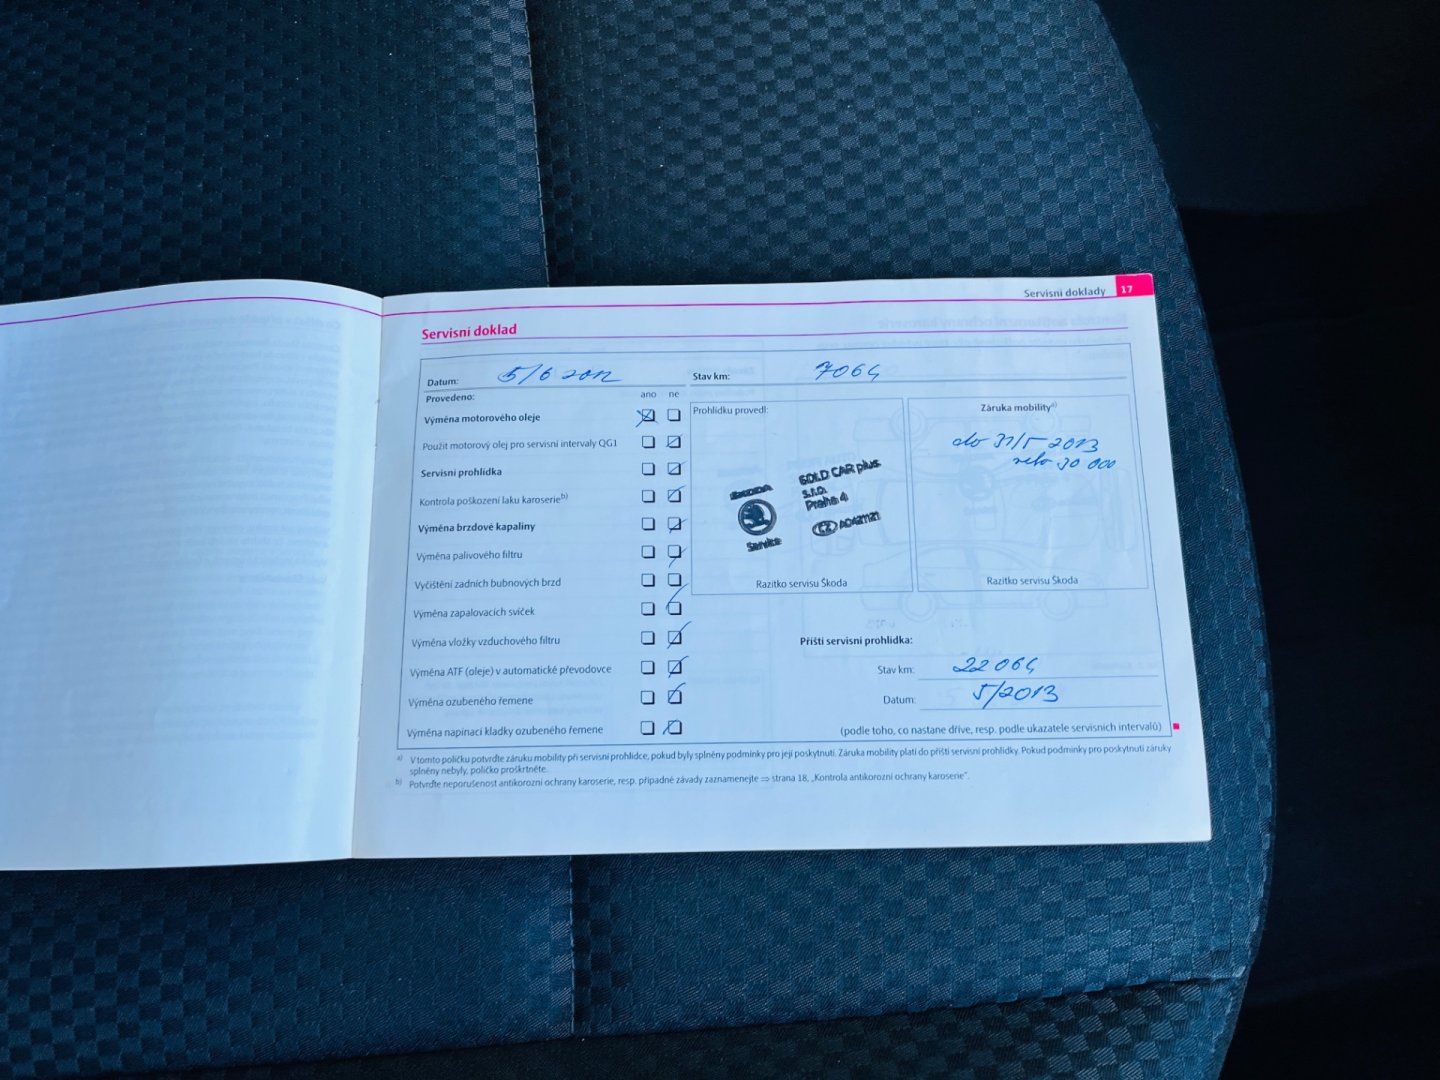 Servisní doklady 17
Servisní doklad
Datum: 5/6 2012 Stav km: 7064
Provedeno: ano ne
Výměna motorového oleje
Použit motorový olej pro servisní intervaly QG1
Servisní prohlídka
Kontrola poškození laku karoserie b)
Výměna brzdové kapaliny
Výměna palivového filtru
Vyčištění zadních bubnových brzd
Výměna zapalovacích svíček
Výměna vložky vzduchového filtru
Výměna ATF (oleje) v automatické převodovce
Výměna ozubeného řemene
Výměna napínací kladky ozubeného řemene
Prohlídku provedl:
GOLD CAR plus
s.r.o.
Praha 4
Service
CZ
Razítko servisu Škoda
Záruka mobility a)
do 31/5 2013
nebo 30 000
Razítko servisu Škoda
Příští servisní prohlídka:
Stav km: 22064
Datum: 5/2013
(podle toho, co nastane dříve, resp. podle ukazatele servisních intervalů)
a) V tomto políčku potvrďte záruku mobility při servisní prohlídce, pokud byly splněny podmínky pro její poskytnutí. Záruka mobility platí do příští servisní prohlídky. Pokud podmínky pro poskytnutí záruky
splněny nebyly, políčko proškrtněte.
b) Potvrďte neporušenost antikorozní ochrany karoserie, resp. případné závady zaznamenejte ⇒ strana 18, „Kontrola antikorozní ochrany karoserie“.